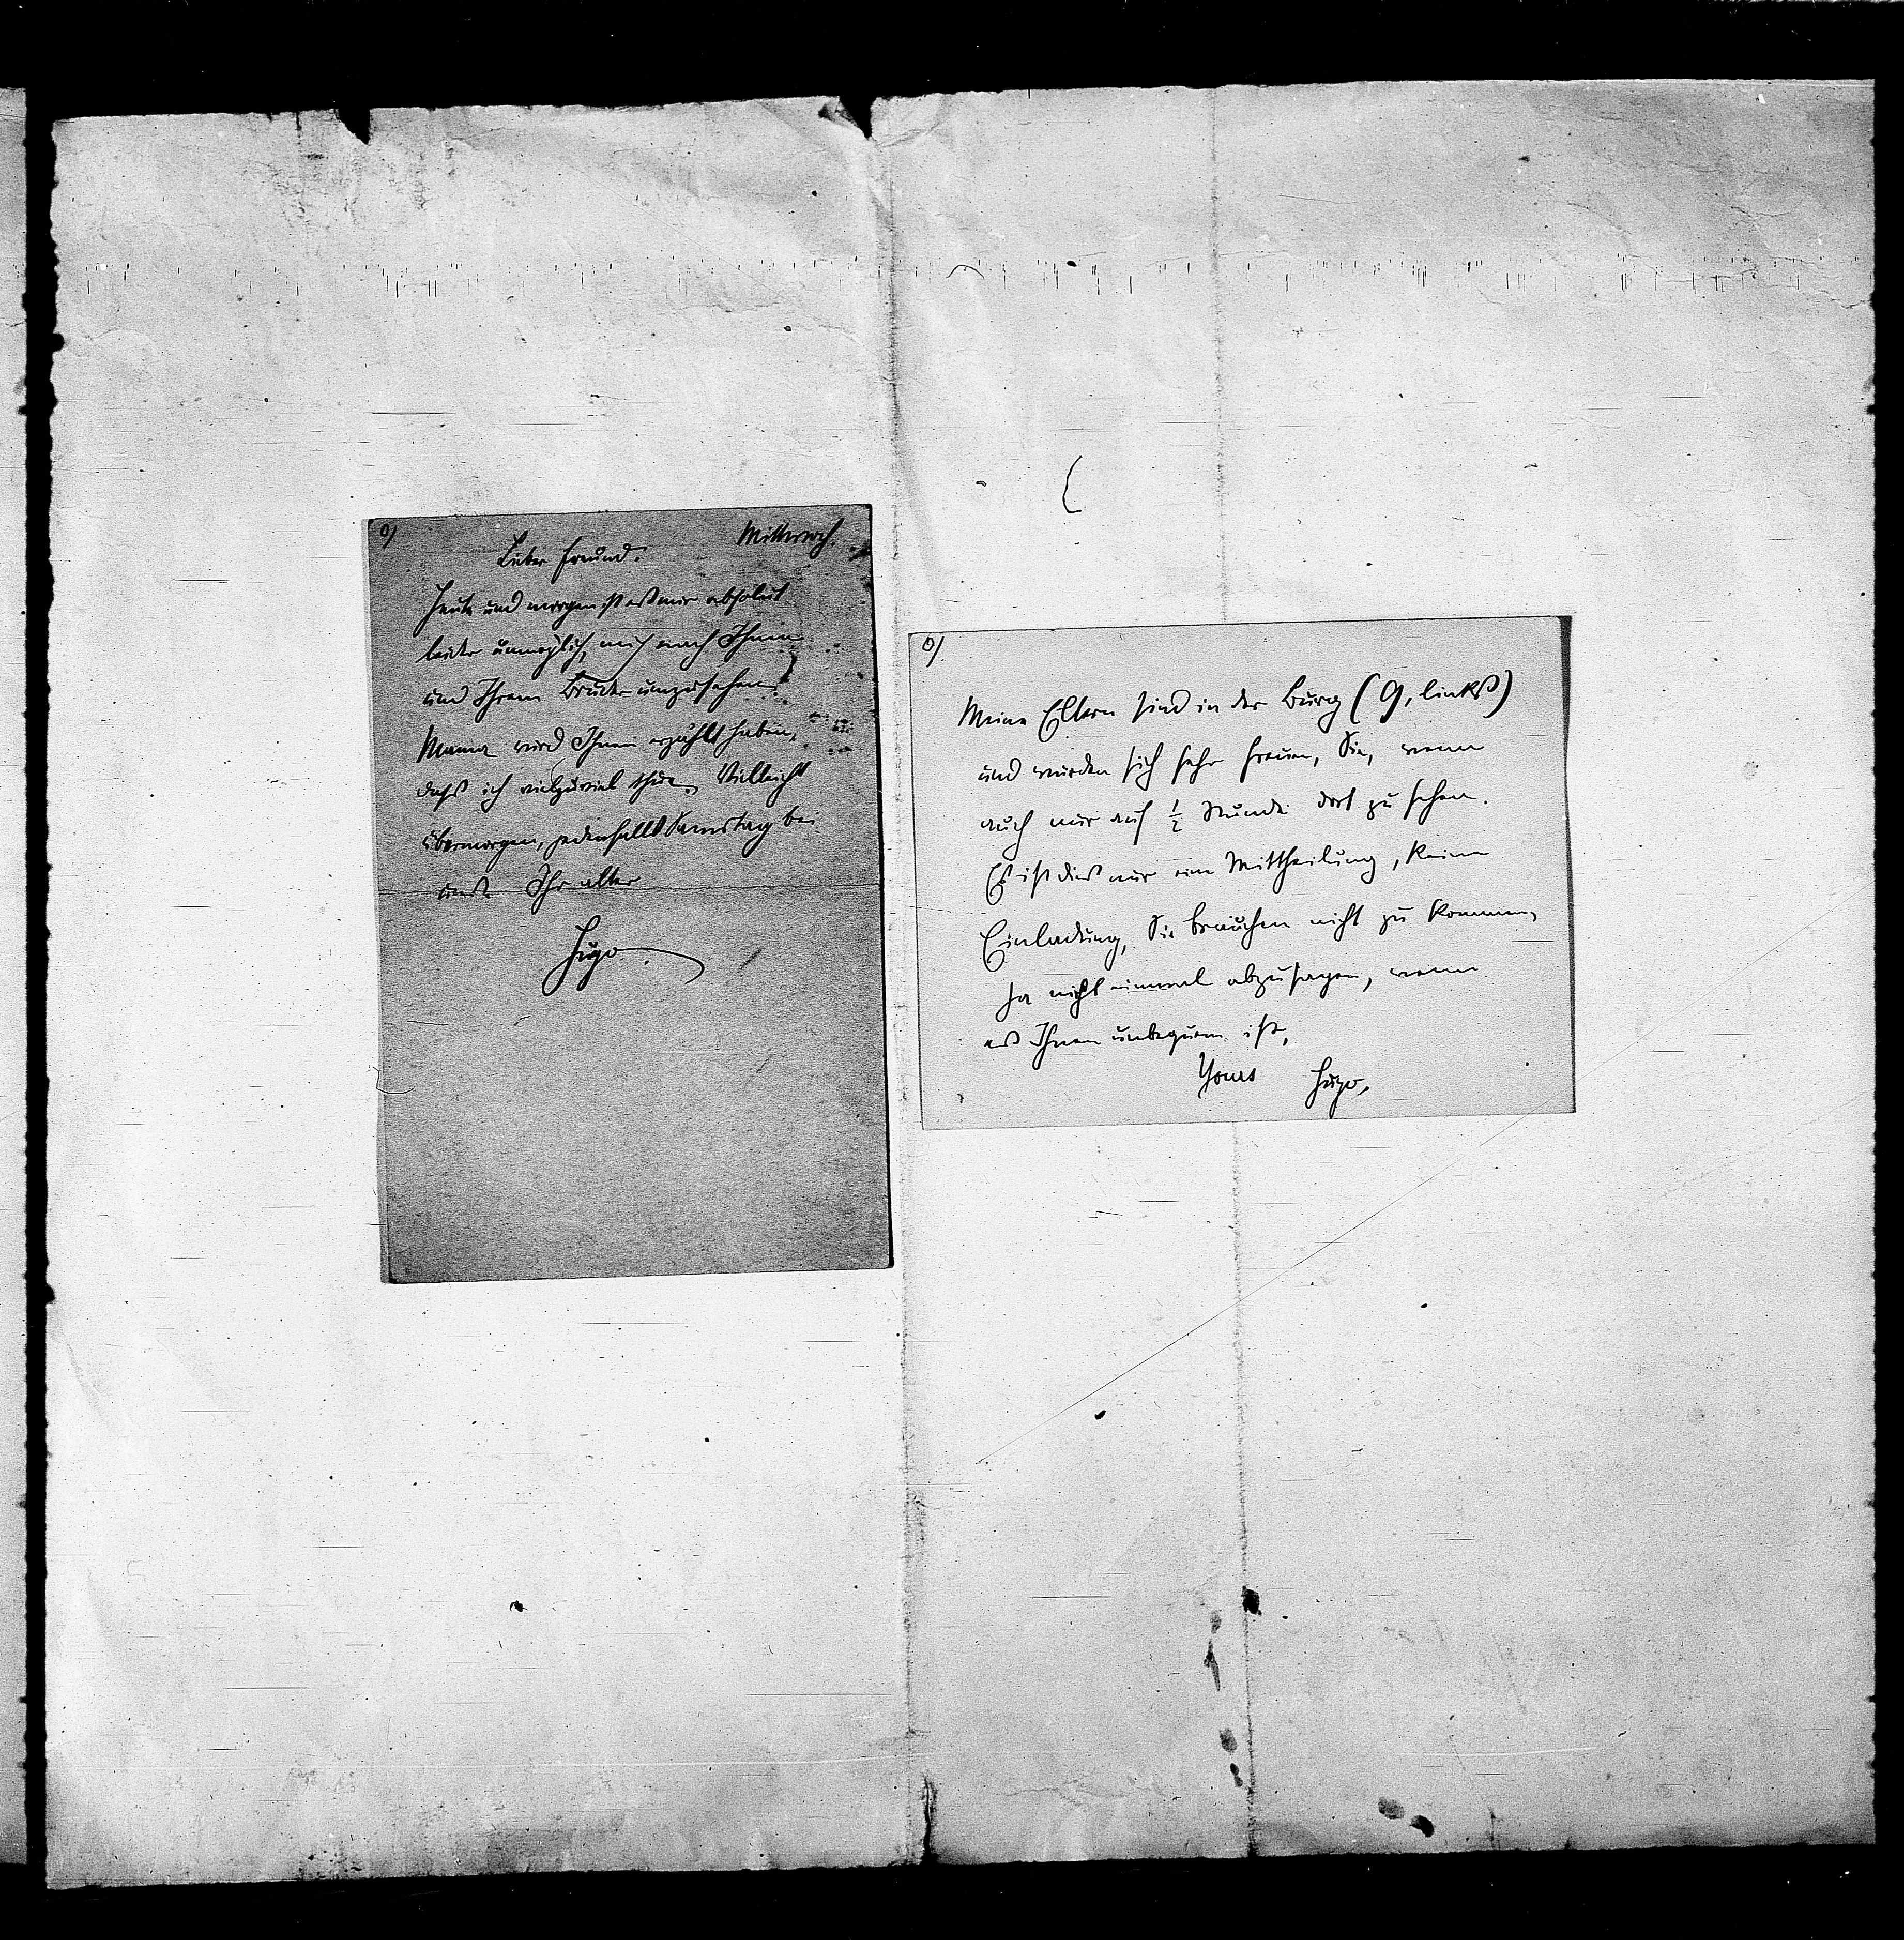 0)
Mittwoch.
Lieber Freund.
Heute und morgen ist es mir absolut
leider unmöglich, mich nach Ihnen
und Ihrem Bruder umzusehen.
Mama wird Ihnen erzählt haben,
dass ich vielzuviel thue. Vielleicht
übermorgen, jedenfalls Samstag bei
uns. Ihr alter
Hugo.
0)
Meine Eltern sind in der Burg (9, links)
und würden sich sehr freuen, Sie, wenn
auch nur auf ½ Stunde dort zu sehen.
Es ist dies nur eine Mittheilung, keine
Einladung, Sie brauchen nicht zu kommen,
ja nicht einmal abzusagen, wenn
es Ihnen unbequem ist,
Yours Hugo.